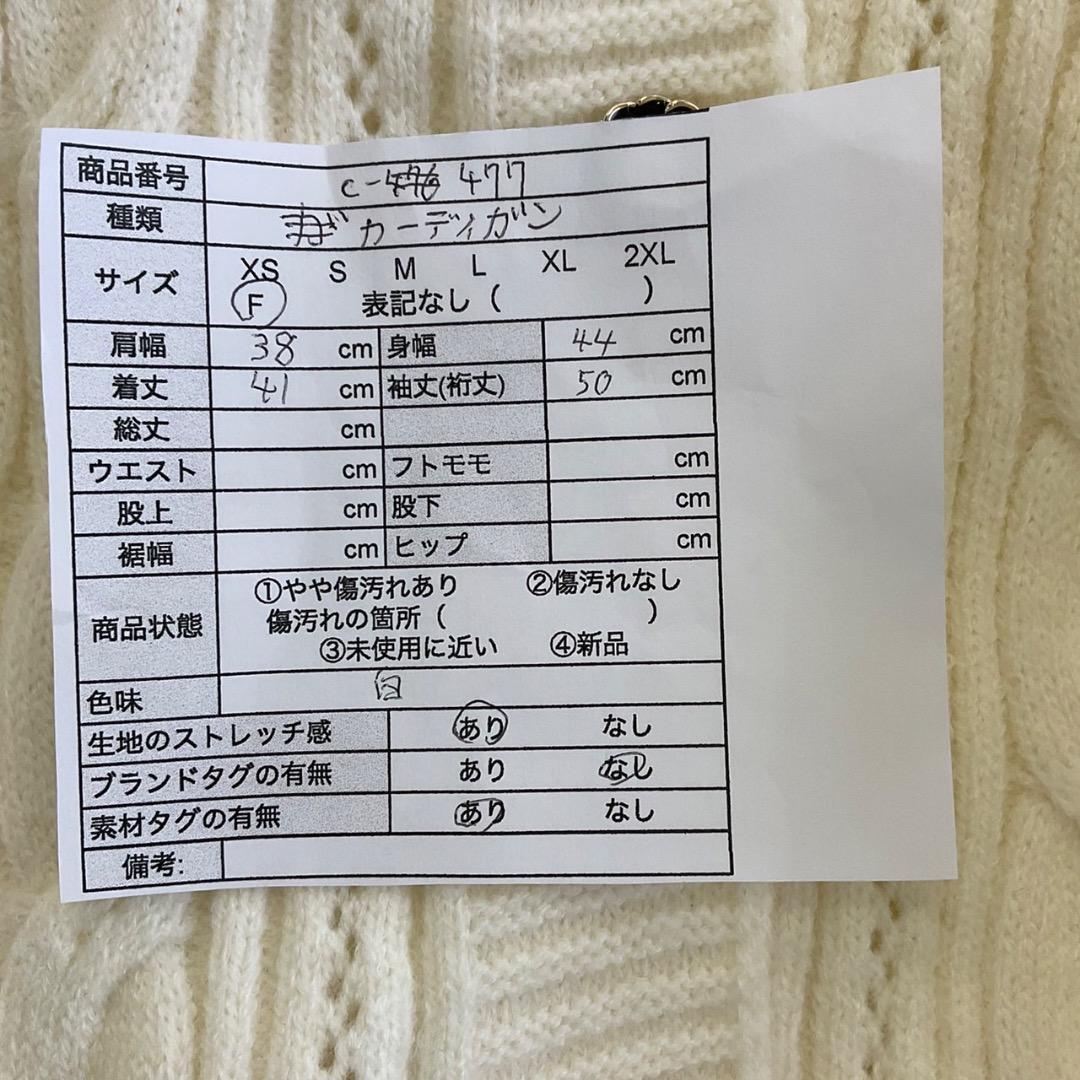 商品番号 C- 477
種類 カーディガン
サイズ XS S M L XL 2XL
F 表記なし ( )
肩幅 38 cm 身幅 44 cm
着丈 41 cm 袖丈(裄丈) 50 cm
総丈 cm
ウエスト cm フトモモ cm
股上 cm 股下 cm
裾幅 cm ヒップ cm
商品状態 ①やや傷汚れあり ②傷汚れなし
傷汚れの箇所 ( )
③未使用に近い ④新品
色味 白
生地のストレッチ感 あり なし
ブランドタグの有無 あり なし
素材タグの有無 あり なし
備考: